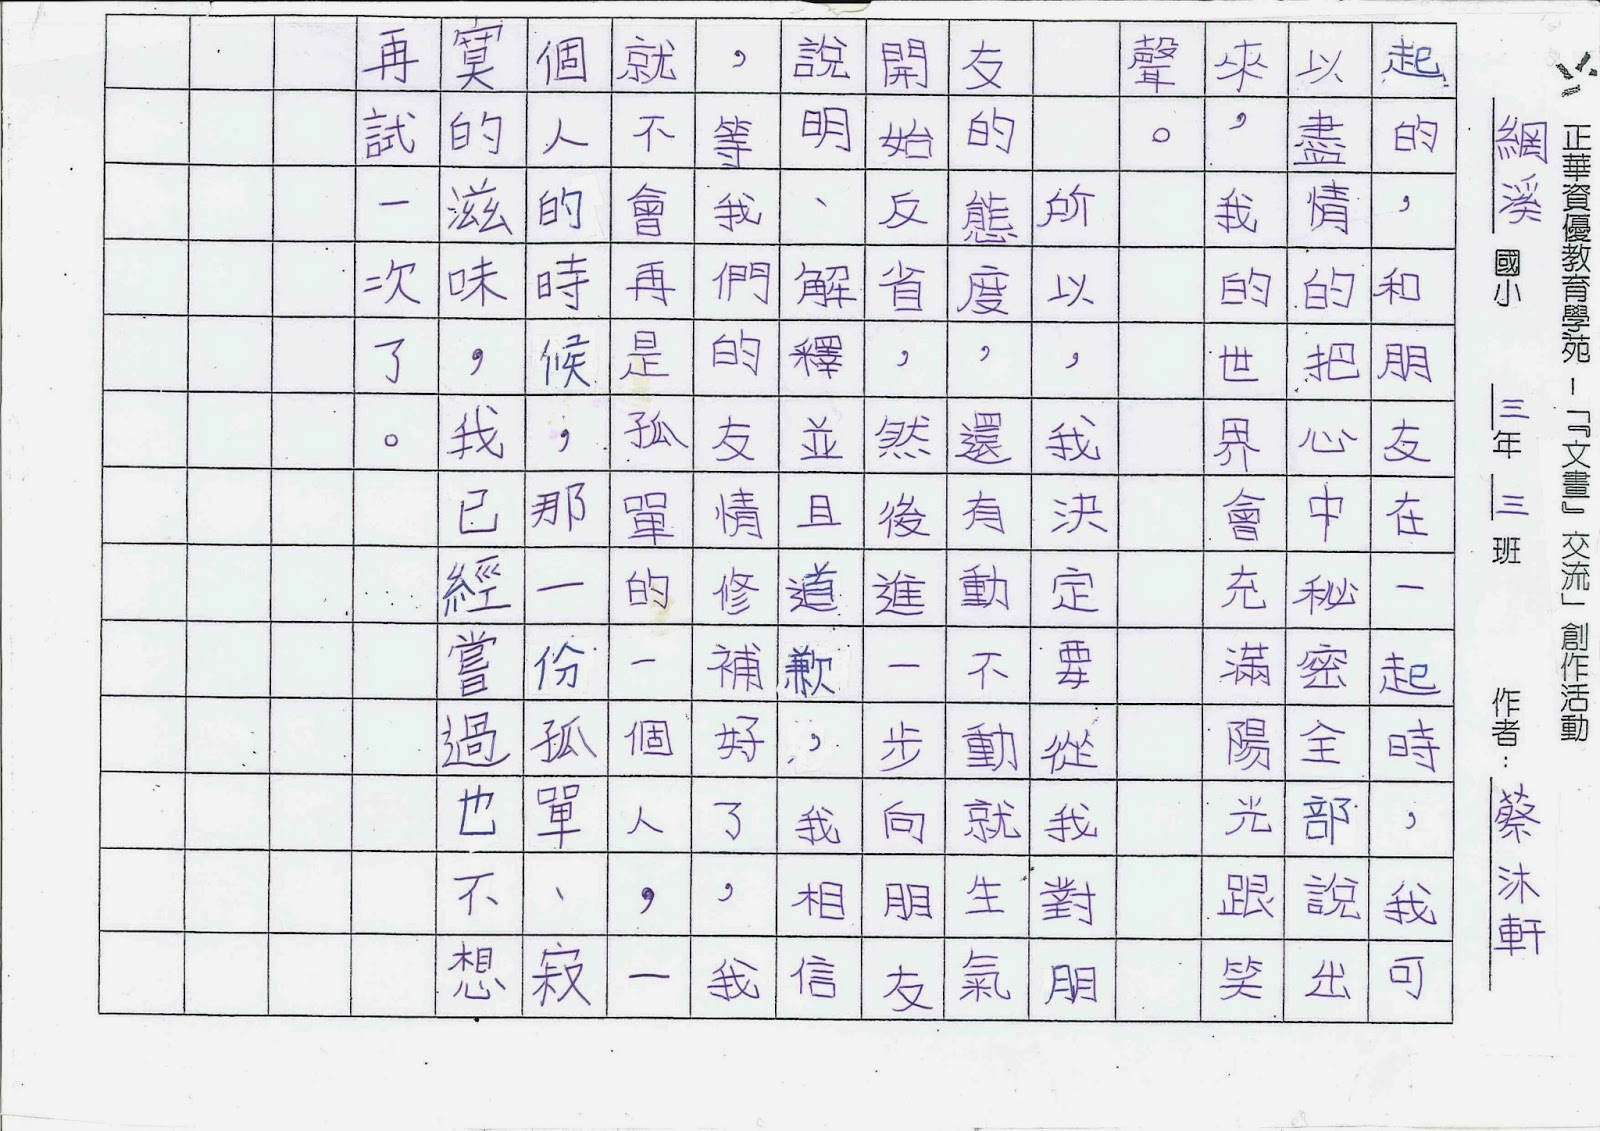 正華資優教育學苑－「『文畫』交流」創作活動
網溪國小 三年三班 作者：蔡沐軒
起的，和朋友在一起時，我可
以盡情的把心中秘密全部說出
來，我的世界會充滿陽光跟笑
聲。
所以，我決定要從我對朋
友的態度，還有動不動就生氣
開始反省，然後進一步向朋友
說明、解釋並且道歉，我相信
，等我們的友情修補好了，我
就不會再是孤單的一個人，一
個人的時候，那一份孤單、寂
寞的滋味，我已經嘗過也不想
再試一次了。